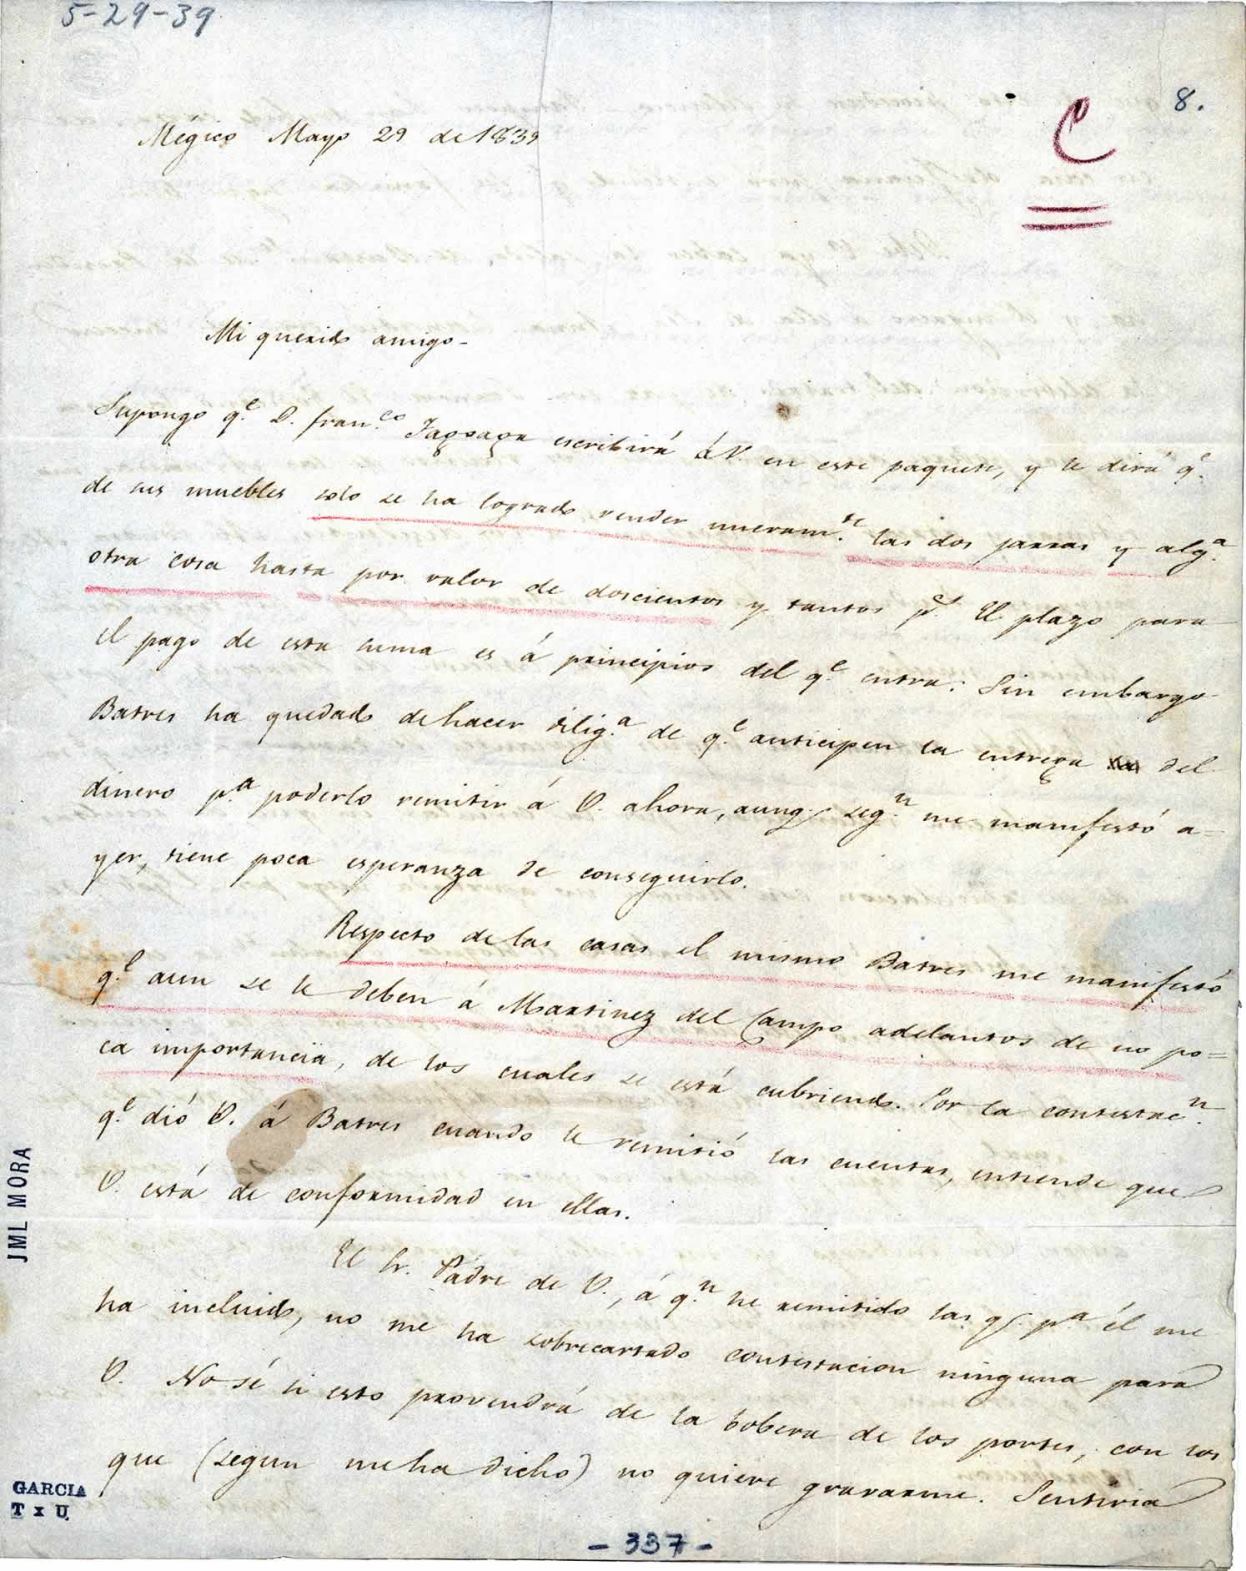 5-29-39
8.
C
Mégico Mayo 29 de 1839
Mi querido amigo-
Supongo q.e D. Fran.co Fagoaga escribirá á V. en este paquete, y le dirá q.e
de sus muebles solo se ha logrado vender nuevam.te las dos jarras y alg.a
otra cosa hasta por valor de doscientos y tantos p.s El plazo para
el pago de esta suma es á principios del q.e entra. Sin embargo
Batres ha quedado de hacer dilig.a de q.e anticipen la entrega del
dinero p.a poderlo remitir á V. ahora, aunq. seg.n me manifestó a-
yer, tiene poca esperanza de conseguirlo.
Respecto de las casas el mismo Batres me manifestó
q.e aun se le deben á Martinez del Campo adelantos de no po=
ca importancia, de los cuales se está cubriendo. Por la contestac.n
q.e dió V. á Batres cuando le remitió las cuentas, entiende que
V. está de conformidad en ellas.
El Sr. Padre de V., á q.n he remitido las q. p.a él me
ha incluido, no me ha sobrecartado contestacion ninguna para
V. No sé si esto provendrá de la bobera de los portes, con los
que (segun me ha dicho) no quiere gravarme. Sentiria
JML MORA
GARCIA
T x U
- 337 -